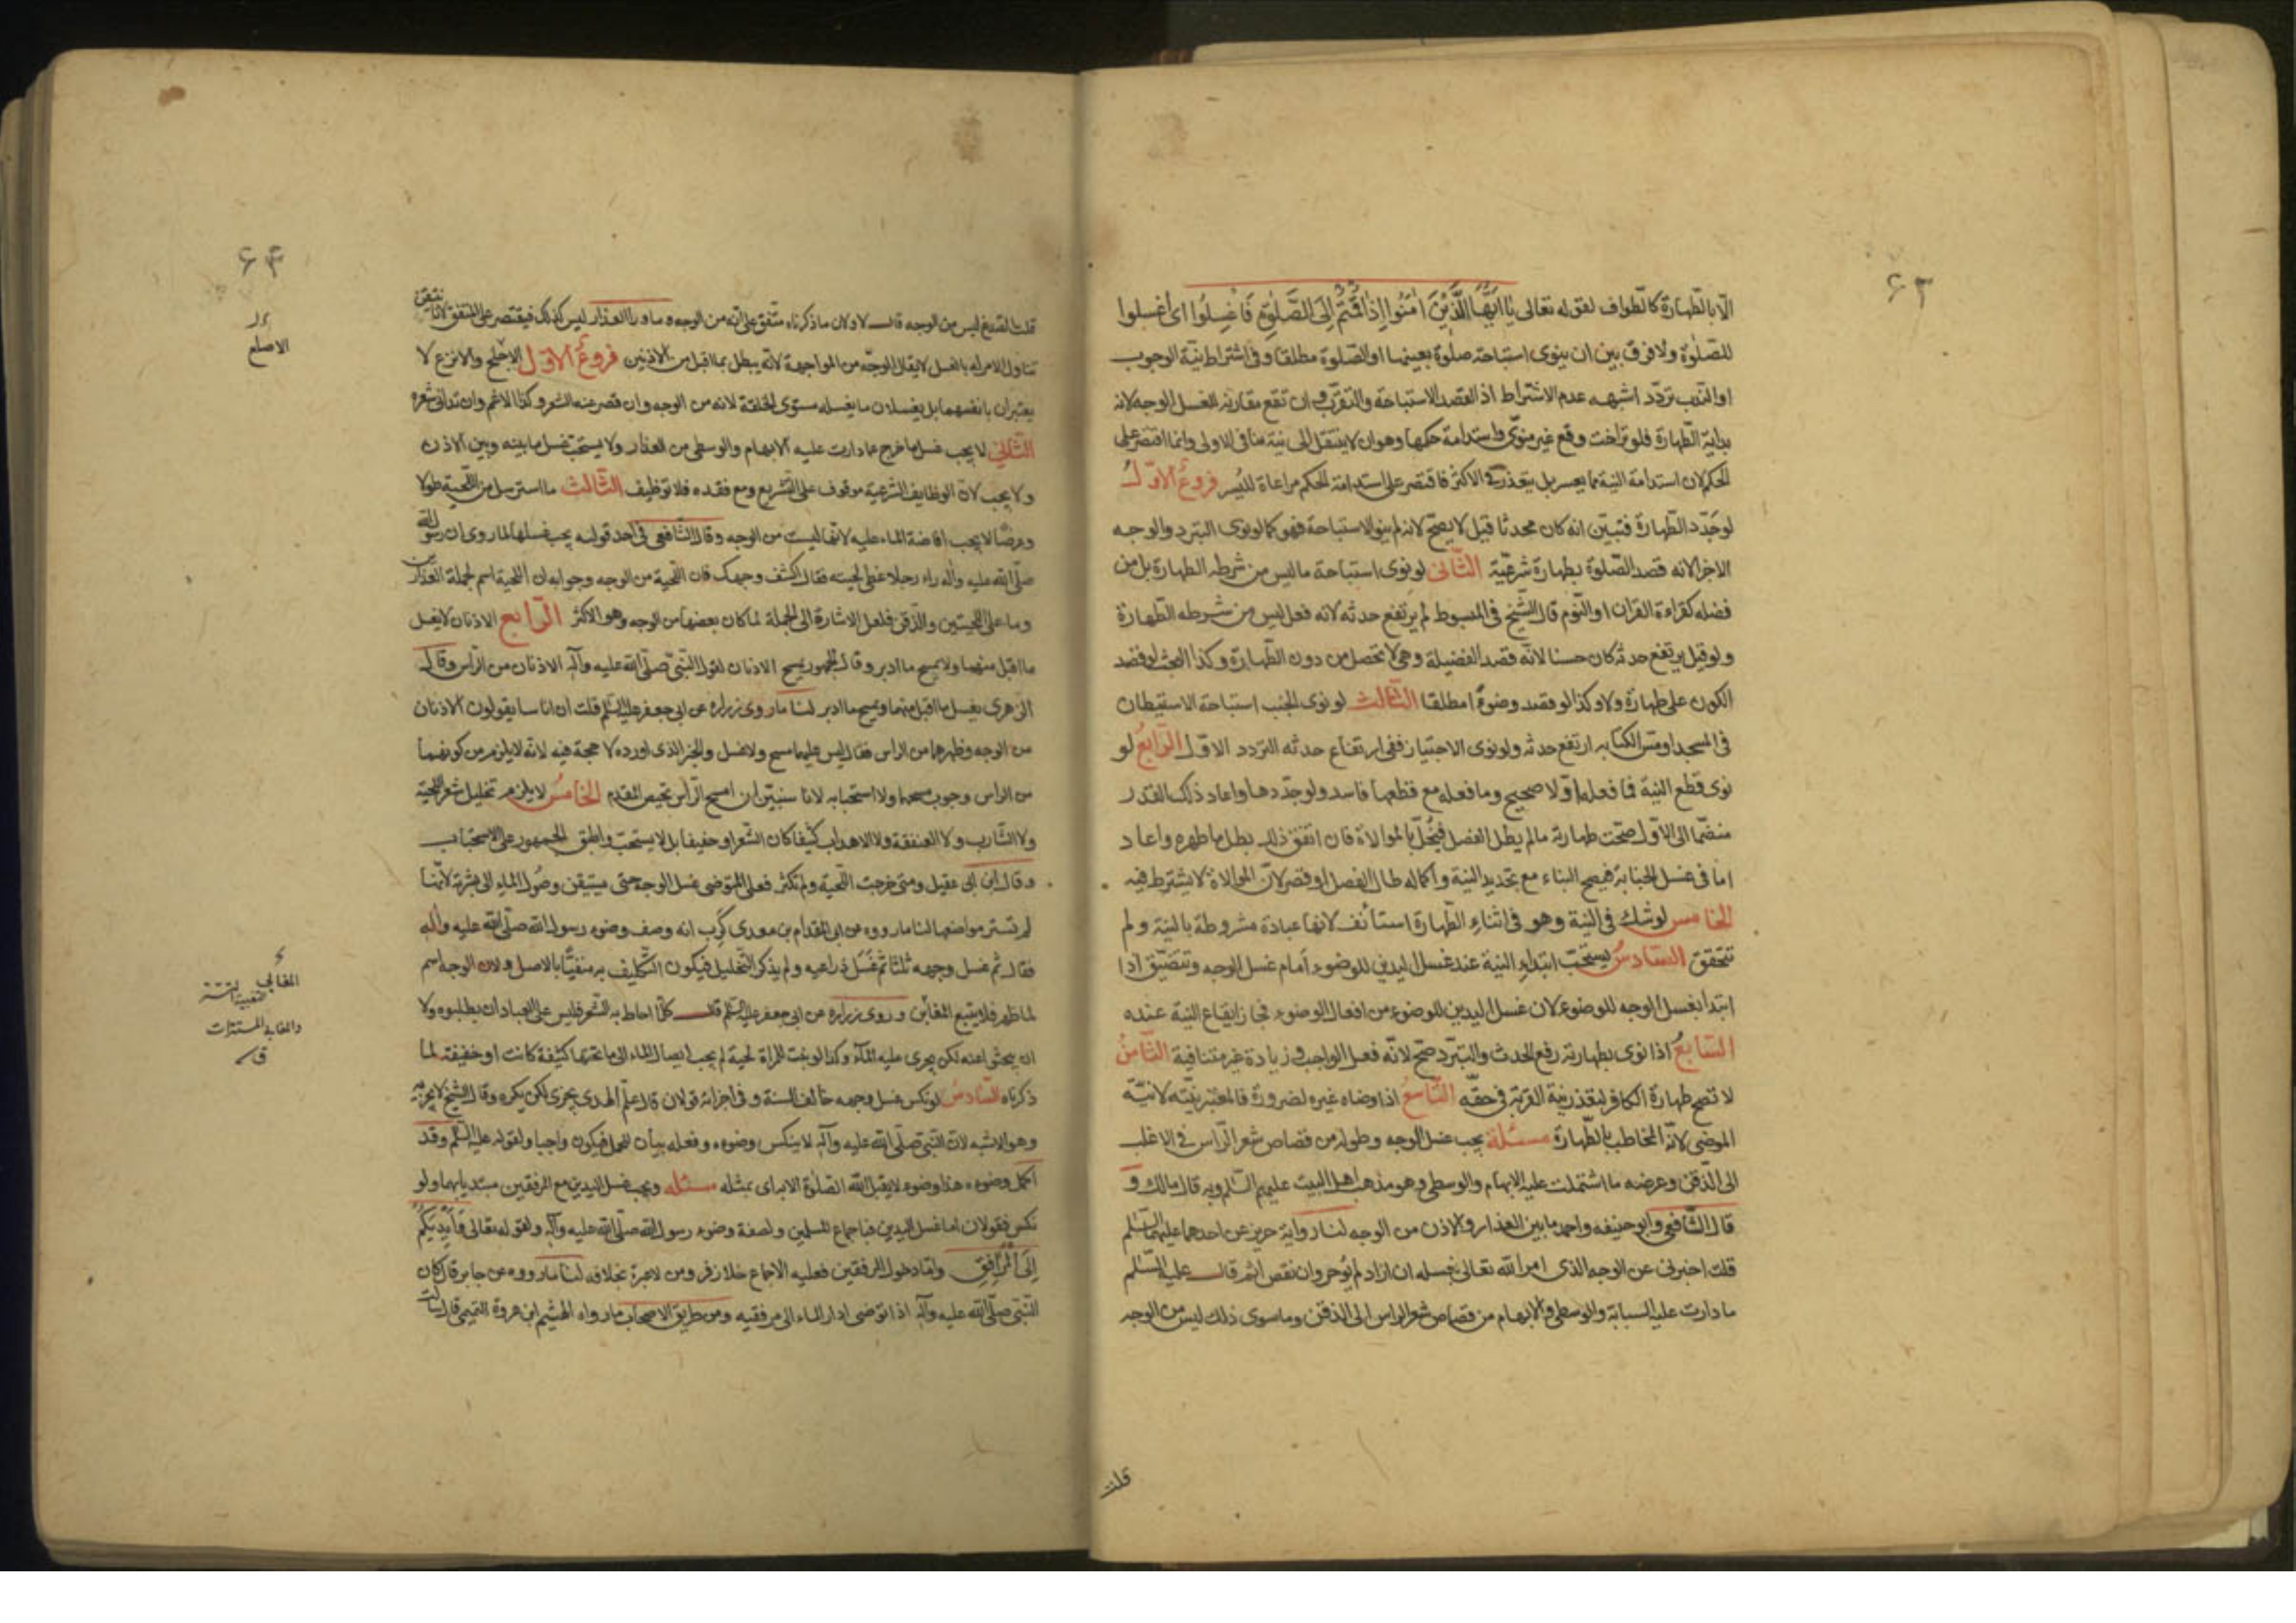 ۶۲
الا بالطهارة كالطواف لقوله تعالى يا ايها الذين امنوا اذا قمتم الى الصلوة فاغسلوا اى اغسلوا
للصلوة ولا فرق بين ان ينوى استباحة صلوة بعينها او الصلوة مطلقا وفى اشتراط نية الوجوب
او الندب تردد اشبهه عدم الاشتراط اذ القصد الاستباحة والتقرب وان تقع مقارنة لغسل الوجه لانه
بداية الطهارة فلو تراخت وقع غير منوى واستدامة حكمها وهو ان لا ينتقل الى نية منافى الاولى وانما اقتصر على
الحكم لان استدامة النية مما يعسر بل يتعذر فى الاكثر فاقتصر على استدامة الحكم مراعاة لليسر فروع الاول
لو جدد الطهارة فتبين انه كان محدثا قيل لا يصح لانه لم ينو الاستباحة فهو كما لو نوى التبرد والوجه
الاجزا لانه قصد الصلوة بطهارة شرعية الثانى لو نوى استباحة ما ليس من شرطه الطهارة بل من
فضله كقراءة القران او النوم قال الشيخ فى المبسوط لم يرتفع حدثه لانه فعل ليس من شرطه الطهارة
ولو قيل يرتفع حدثه كان حسنا لانه قصد الفضيلة وهى لا تحصل من دون الطهارة وكذا البحث لو قصد
الكون على طهارة ولا وكذا لو قصد وضوءا مطلقا الثالث لو نوى الجنب استباحة الاستيطان
فى المسجد او مس الكتابه ارتفع حدثه ولو نوى الاجتياز ففى ارتفاع حدثه التردد الاول الرابع لو
نوى قطع النية فما فعله اولا صحيح وما فعله مع قطعها فاسد ولو جددها واعاد ذلك القدر
منضما الى الاول صحت طهارته ما لم يطل الفصل فيخل بالموالاة فان اتفق ذلك بطل ما طهره واعاد
اما فى غسل الجنابة فيصح البناء مع تجديد النية واكماله طال الفصل او قصر لان الموالاة لا يشترط فيه
الخامس لو شك فى النية وهو فى اثناء الطهارة استأنف لانها عبادة مشروطة بالنية ولم
تتحقق السادس يستحب ابتداء النية عند غسل اليدين للوضوء امام غسل الوجه وتتضيق اذا
ابتدأ بغسل الوجه للوضوء لان غسل اليدين للوضوء من افعال الوضوء فجاز ايقاع النية عنده
السابع اذا نوى بطهارته رفع الحدث والتبرد صح لانه فعل الواجب وزيادة غير متنافية الثامن
لا تصح طهارة الكافر لتعذر نية القربة فى حقه التاسع اذا وضاه غيره لضرورة فالمعتبر نيته لا نية
الموضى لانه المخاطب بالطهارة مسئلة يجب غسل الوجه وطوله من قصاص شعر الراس فى الاغلب
الى الذقن وعرضه ما اشتملت عليه الابهام والوسطى وهو مذهب اهل البيت عليهم السلم وبه قال مالك و
قال الشافعى وابو حنيفه واحمد ما بين العذار والاذن من الوجه لنا رواية حريز عن احدهما عليهما السلم
قلت اخبرنى عن الوجه الذى امر الله تعالى بغسله ان ازاد لم يؤجر وان نقص اثم قال عليه السلم
ما دارت عليه السبابة والوسطى والابهام من قصاص شعر الراس الى الذقن وما سوى ذلك ليس من الوجه
قلت
۶۳
قلت الصدغ ليس من الوجه قال لا ولان ما ذكرناه متفق على انه من الوجه وما ورا العذار ليس كذلك فيقتصر على المتفق لانا نتيقن
تناول الامر له بالغسل لا يقال الوجه من المواجهة لانه يبطل بما اقبل من الاذنين فروع الاول الاجلح والانزع لا
يعتبران بانفسهما بل يغسلان ما يغسله مستوى الخلقة لانه من الوجه وان قصر عنه الشعر وكذا الاغم وان تدانى شعره
الثانى لا يجب غسل ما خرج عما دارت عليه الابهام والوسطى من العذار ولا يستحب غسل ما بينه وبين الاذن
ولا يجب لان الوظايف الشرعية موقوف على التشريع ومع فقده فلا توظيف الثالث ما استرسل من اللحية طولا
وعرضا لا يجب افاضة الماء عليه لانها ليست من الوجه وقال الشافعى فى احد قوليه يجب غسلها لما روى ان رسول الله
صلى الله عليه واله راى رجلا غطى لحيته فقال اكشف وجهك فان اللحية من الوجه وجوابه ان اللحية اسم لجملة العذارين
وما على اللحيتين والذقن فلعل الاشارة الى الجملة لما كان بعضها من الوجه وهو الاكثر الرابع الاذنان لا يغسل
ما اقبل منهما ولا يمسح ما ادبر وقال الجمهور يمسح الاذنان لقول النبى صلى الله عليه وآله الاذنان من الراس وقال
الزهرى يغسل ما اقبل منهما ويمسح ما ادبر لنا ما روى زراره عن ابى جعفر عليه السلم قلت ان اناسا يقولون الاذنان
من الوجه وظهرهما من الراس فقال ليس عليهما مسح ولا غسل والخبر الذى اورده لا حجة فيه لانه لا يلزم من كونهما
من الراس وجوب مسحهما ولا استحبابه لانا سنبين ان امسح الراس تختص المقدم الخامس لا يلزم تخليل شعر اللحية
ولا الشارب ولا العنفقة ولا الاهداب كثيفا كان الشعر او خفيفا بل لا يستحب واطبق الجمهور على الاستحباب
وقال ابن ابى عقيل ومتى خرجت اللحية ولم تكثر فعلى المتوضى غسل الوجه حتى يستيقن وصول الماء الى بشرته لانها
لم تستر مواضعها لنا ما رووه عن ابى المقدام بن معدى كرب انه وصف وضوء رسول الله صلى الله عليه وآله
فقال ثم غسل وجهه ثلثا ثم غسل ذراعيه ولم يذكر التخليل فيكون التكليف به منفيا بالاصل ولان الوجه اسم
لما ظهر فلا يتبع المغابن وروى زراره عن ابى جعفر عليه السلم قال كلما احاط به الشعر فليس على العباد ان يطلبوه ولا
ان يبحثوا عنه لكن يجرى عليه الماء وكذا لو نبت للمراة لحية لم يجب ايصال الماء الى ما تحتها كثيفة كانت او خفيفة لما
ذكرناه السادس لو نكس غسل وجهه خالف السنة وفى اجزائه قولان قال علم الهدى يجزى لكن يكره وقال الشيخ لا يجزيه
وهو الاشبه لان النبى صلى الله عليه وآله لا ينكس وضوءه وفعله بيان للمجمل فيكون واجبا ولقوله عليه السلم وقد
اكمل وضوءه هذا وضوء لا يقبل الله الصلوة الا به اى بمثله مسئله ويجب غسل اليدين مع المرفقين مبتديا بهما ولو
نكس فقولان اما غسل اليدين فباجماع المسلمين ولصفة وضوء رسول الله صلى الله عليه وآله ولقوله تعالى فايديكم
الى المرافق واما دخول المرفقين فعليه الاجماع خلا زفر ومن لا عبرة بخلافه لنا ما رووه عن جابر قال كان
النبى صلى الله عليه وآله اذا توضى ادار الماء الى مرفقيه ومن طريق الاصحاب ما رواه الهيثم ابن عروة التميمى قال سألت
الاصلع
المغابن
والمغابن المستترات